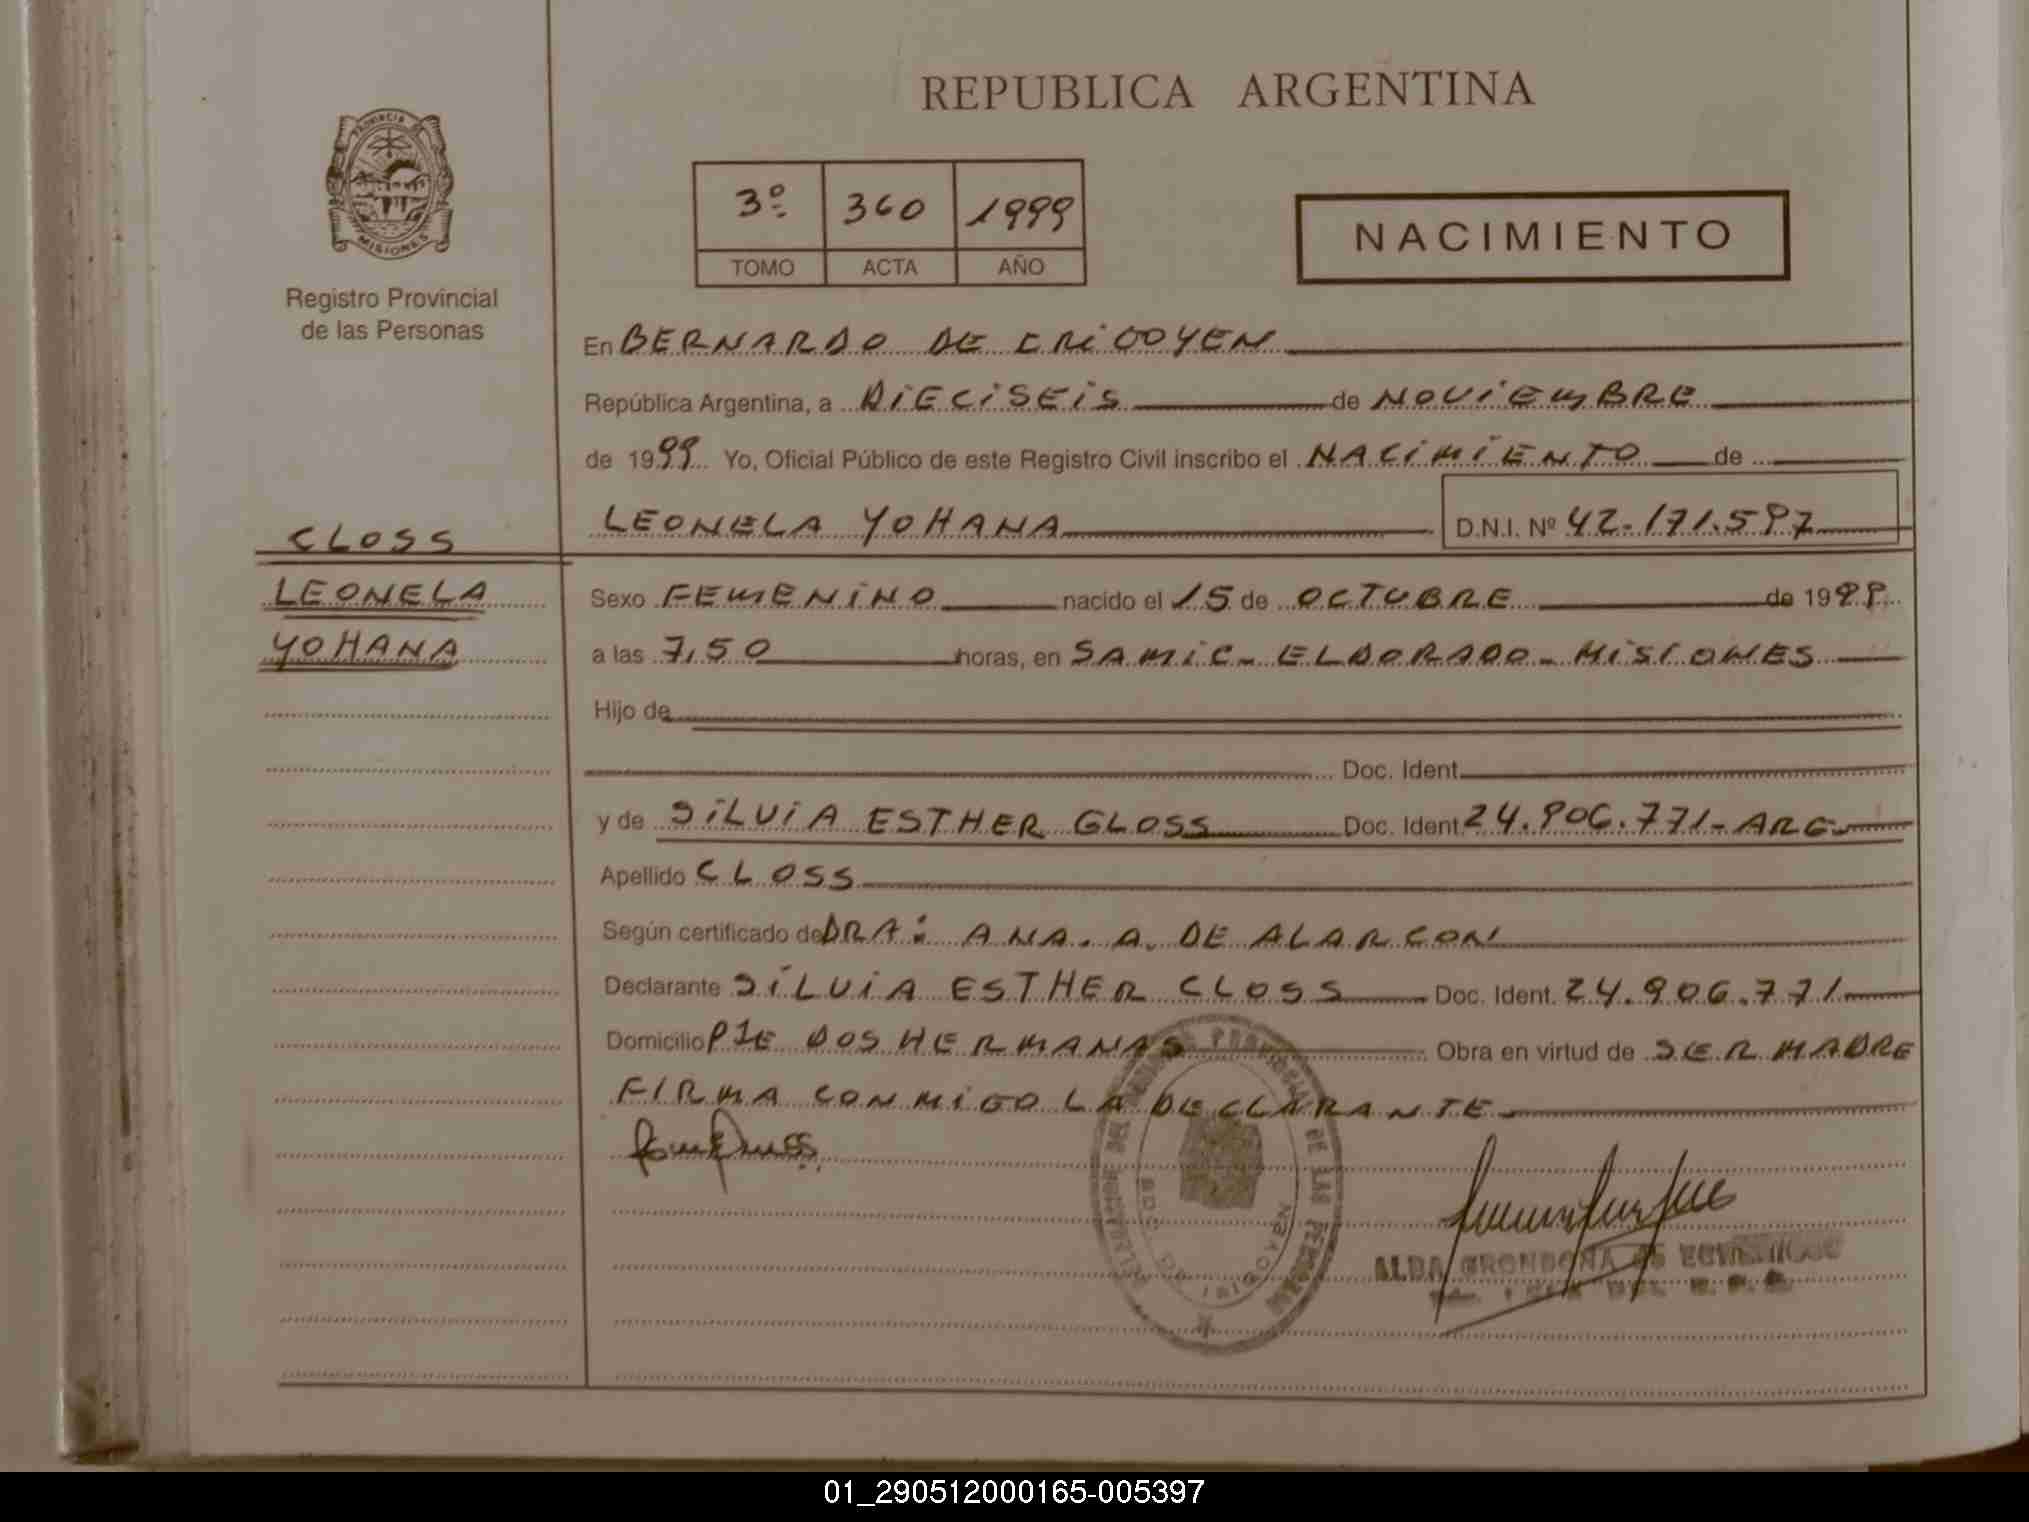 REPUBLICA ARGENTINA
PROVINCIA DE
MISIONES
Registro Provincial
de las Personas
3º 360 1999
TOMO ACTA AÑO
NACIMIENTO
En BERNARDO DE IRIGOYEN
República Argentina, a DIECISEIS de NOVIEMBRE
de 1999 Yo, Oficial Público de este Registro Civil inscribo el NACIMIENTO de
LEONELA YOHANA D.N.I. Nº 42.171.597
CLOSS
LEONELA
YOHANA
Sexo FEMENINO nacido el 15 de OCTUBRE de 1999
a las 7,50 horas, en SAMIC - ELDORADO - MISIONES
Hijo de
Doc. Ident.
y de SILVIA ESTHER GLOSS Doc. Ident. 24.906.771 - ARG
Apellido CLOSS
Según certificado de DRA: ANA. A. DE ALARCON
Declarante SILVIA ESTHER CLOSS Doc. Ident. 24.906.771
Domicilio PJE DOS HERMANAS Obra en virtud de SER MADRE
FIRMA CONMIGO LA DECLARANTE
PROVINCIAL DE LAS PERSONAS
BDO. DE IRIGOYEN
ALBA GRONDONA DE
01_290512000165-005397